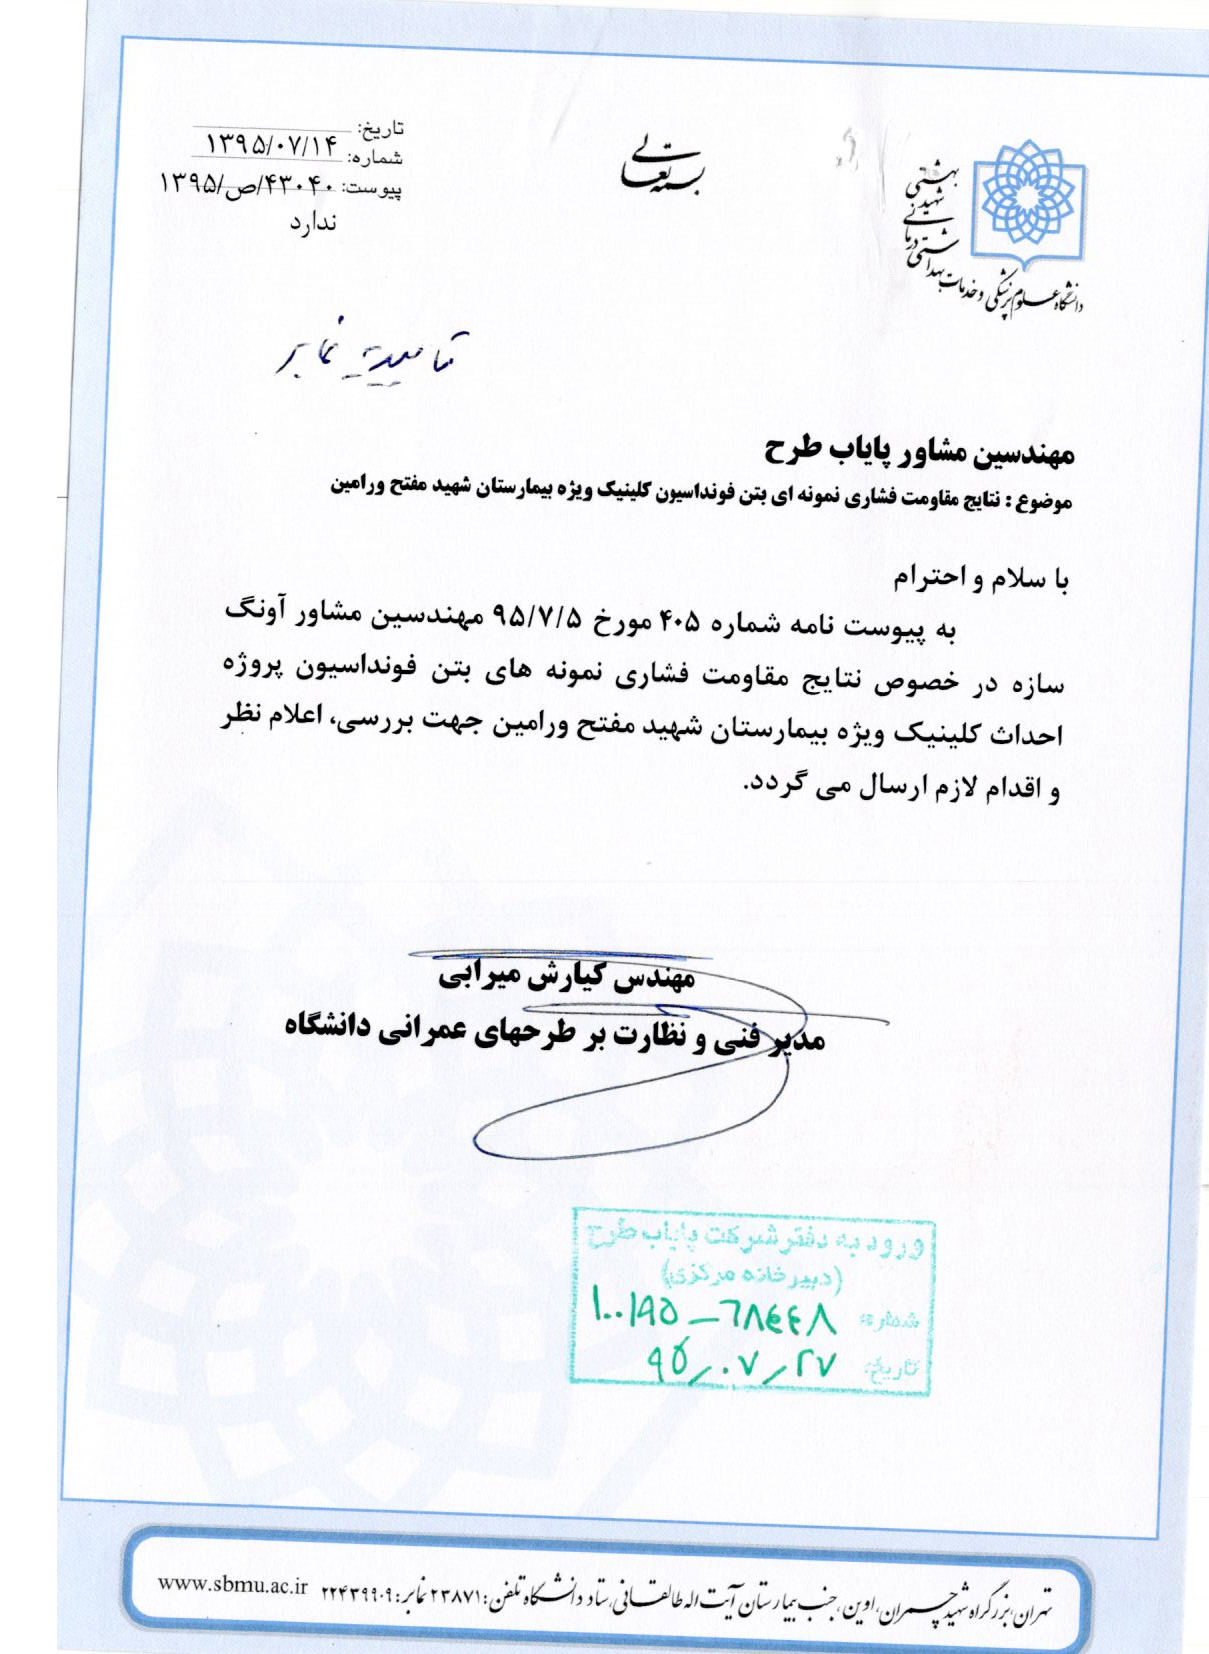 بسمه تعالی
دانشگاه علوم پزشکی و خدمات بهداشتی درمانی شهید بهشتی
تاریخ: ۱۳۹۵/۰۷/۱۴
شماره: ۱۳۹۵/ص/۴۳۰۴۰
پیوست: ندارد
نمابر
مهندسین مشاور پایاب طرح
موضوع : نتایج مقاومت فشاری نمونه ای بتن فونداسیون کلینیک ویژه بیمارستان شهید مفتح ورامین
با سلام و احترام
به پیوست نامه شماره ۴۰۵ مورخ ۹۵/۷/۵ مهندسین مشاور آونگ
سازه در خصوص نتایج مقاومت فشاری نمونه های بتن فونداسیون پروژه
احداث کلینیک ویژه بیمارستان شهید مفتح ورامین جهت بررسی، اعلام نظر
و اقدام لازم ارسال می گردد.
مهندس کیارش میرابی
مدیر فنی و نظارت بر طرحهای عمرانی دانشگاه
ورود به دفتر شرکت پایاب طرح
(دبیرخانه مرکزی)
شماره: ۱۰۰/۹۵-۶۸۴۴۸
تاریخ: ۹۵/۰۷/۲۷
تهران، بزرگراه شهید چمران، اوین، جنب بیمارستان آیت اله طالقانی، ستاد دانشگاه تلفن: ۲۳۸۷۱ نمابر: ۲۲۴۳۹۹۰۹ www.sbmu.ac.ir